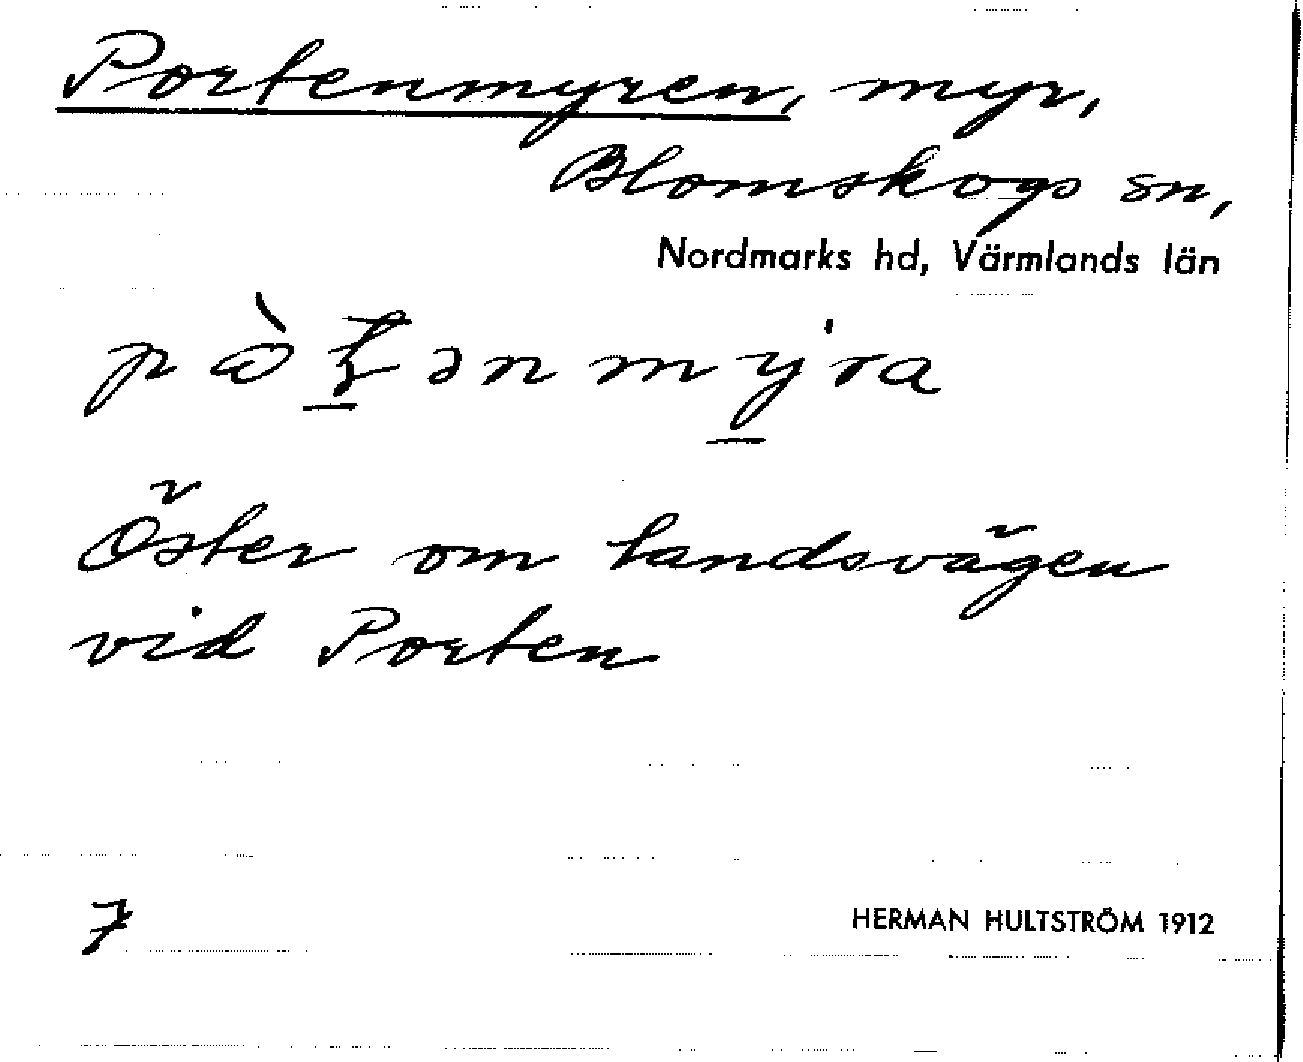 Portenmyren, myr,
Blomskogs sn,
Nordmarks hd, Värmlands län
Öster om landsvägen
vid Porten
7
HERMAN HULTSTRÖM 1912